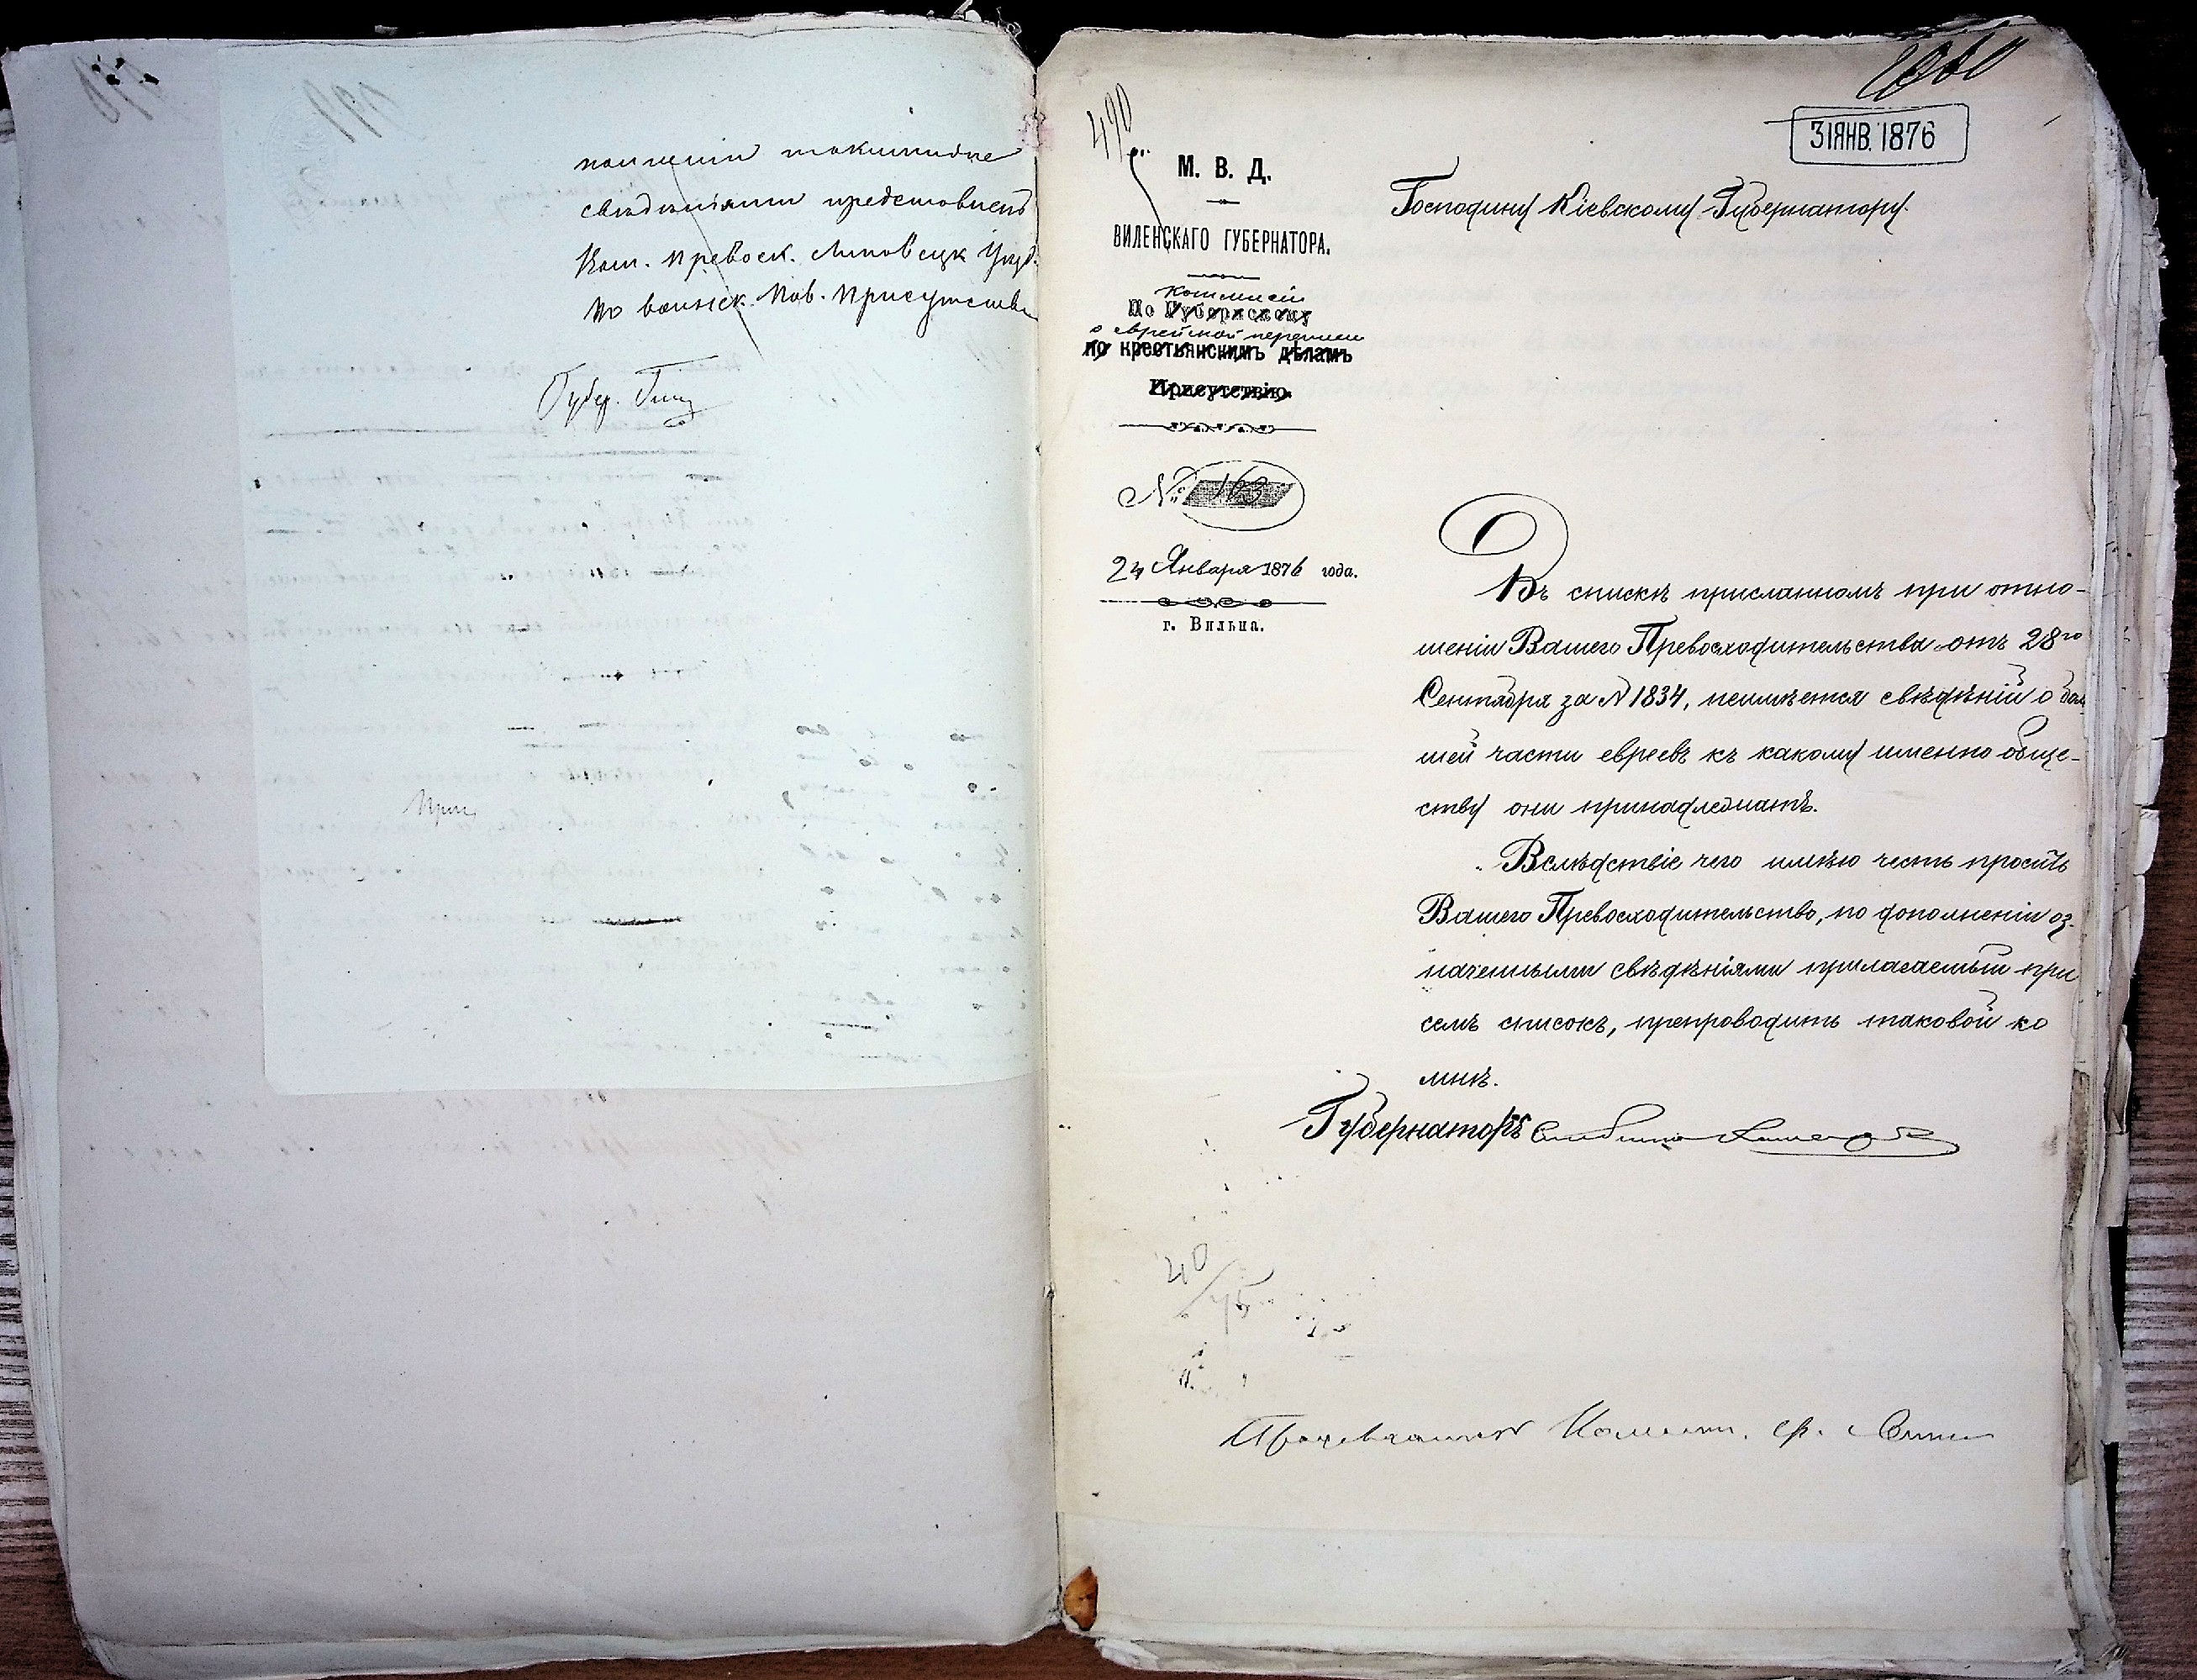 свѣдѣніями представленъ
Ком. Превосх. Липовецк Уѣзд.
по воинск. Пов. Присутстві
Губер. Гессе
При
490
31 ЯНВ. 1876
М. В. Д.
ВИЛЕНСКАГО ГУБЕРНАТОРА.
Коммисіи
По Губернскому
о еврейской переписи
по крестьянскимъ дѣламъ
Присутствію.
№ 163
24 Января 1876 года.
г. Вильна.
Господину Кіевскому Губернатору.
Въ спискѣ присланномъ при отно-
шеніи Вашего Превосходительства отъ 28го
Сентября за N 1834, неимѣется свѣдѣній о боль
шей части евреевъ къ какому именно обще-
ству они принадлежатъ.
Вслѣдствіе чего имѣю честь просить
Вашего Превосходительство, по дополненіи оз-
наченными свѣдѣніями прилагаемый при
семъ списокъ, препроводить таковой ко
мнѣ.
Губернаторъ